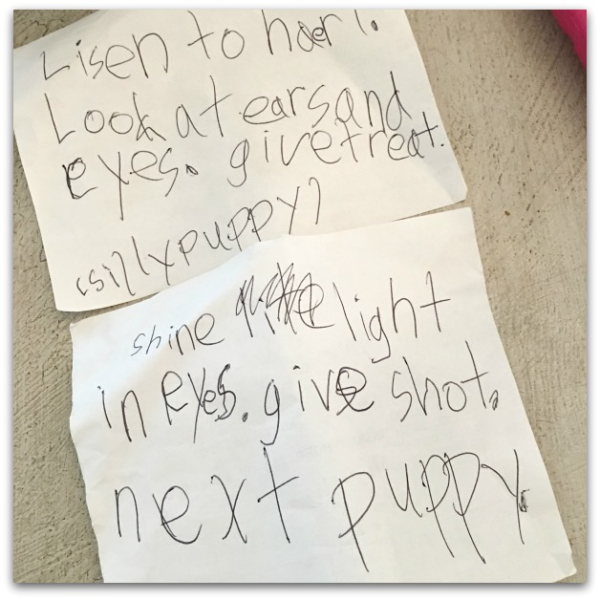 Lisen to haert.
Look at ears and
eyes. give treat.
(silly puppy)
shine light
in eyes. give shot.
next puppy.